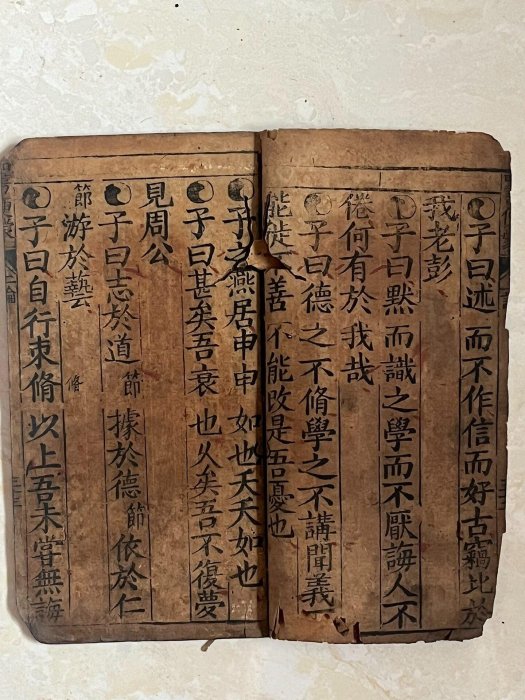 子曰述而不作信而好古竊比於
我老彭
子曰默而識之學而不厭誨人不
倦何有於我哉
子曰德之不脩學之不講聞義不
能徙不善不能改是吾憂也
子之燕居申申如也夭夭如也
子曰甚矣吾衰也久矣吾不復夢
見周公
子曰志於道節據於德節依於仁
節游於藝
脩
子曰自行束脩以上吾未嘗無誨